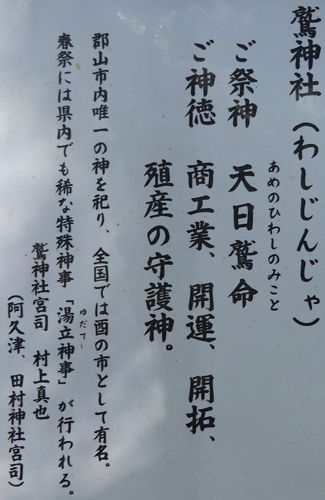 鷲神社（わしじんじゃ）
ご祭神　天日鷲命
あめのひわしのみこと
ご神徳　商工業、開運、開拓、
殖産の守護神。
郡山市内唯一の神を祀り、全国では酉の市として有名。
春祭には県内でも稀な特殊神事「湯立神事」が行われる。
ゆだて
鷲神社宮司　村上真也
（阿久津、田村神社宮司）